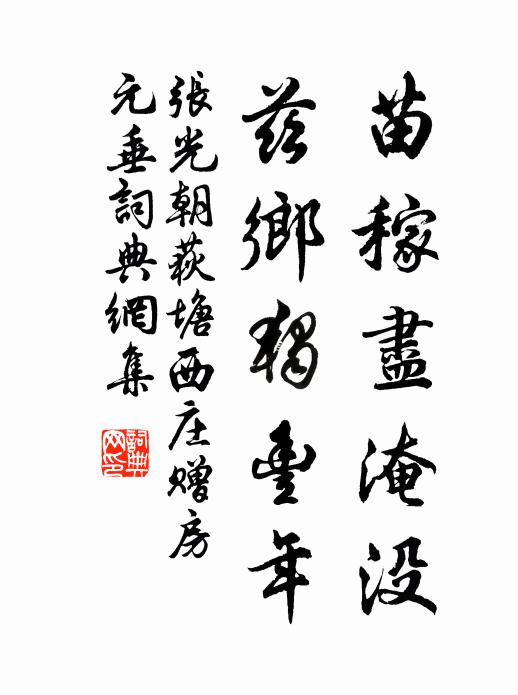 苗稼盡淹没
茲鄉獨豐年
張光朝荻塘西庄赠房
元垂詞典網集
詞典网印